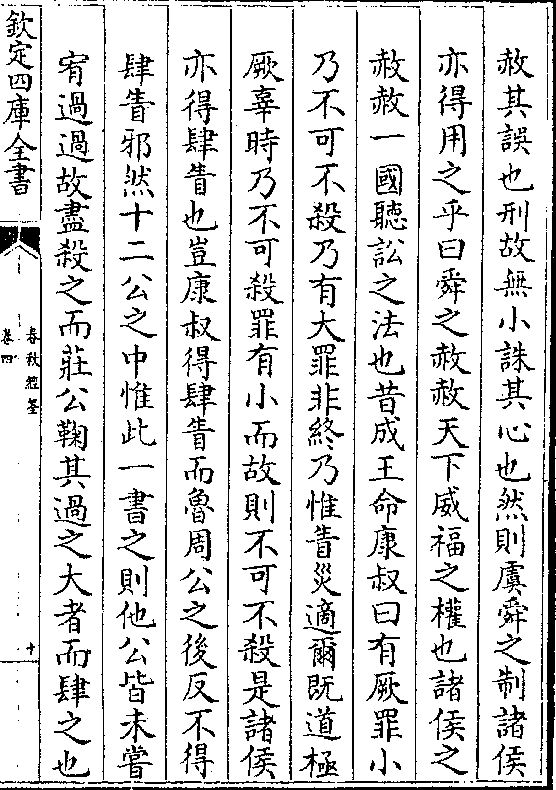 赦其誤也刑故無小誅其心也然則虞舜之制諸侯
亦得用之乎曰舜之赦赦天下威福之權也諸侯之
赦赦一國聽訟之法也昔成王命康叔曰有厥罪小
乃不可不殺乃有大罪非終乃惟眚災適爾既道極
厥辜時乃不可殺罪有小而故則不可不殺是諸侯
亦得肆眚也豈康叔得肆眚而魯周公之後反不得
肆眚邪然十二公之中惟此一書之則他公皆未嘗
宥過過故盡殺之而莊公鞠其過之大者而肆之也
欽定四庫全書
春秋經筌
卷四
十